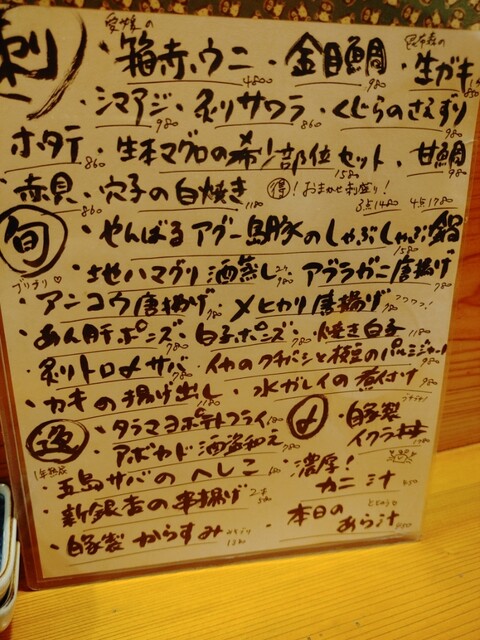 刺
愛媛の
・箱赤ウニ 4800 ・金目鯛 980 ・生ガキ
・シマアジ 980 ・炙りサワラ 860 ・くじらのさえずり 980
ホタテ 860 ・生本マグロの希少部位セット 1580 ・甘鯛 980
・赤貝 860 ・穴子の白焼き 1180 得!おまかせ刺盛り! 3点1480 4点1780
旬
・やんばるアグー島豚のしゃぶしゃぶ鍋 1580
プリプリ♡
・地ハマグリ酒蒸し ・アブラガニ唐揚げ 980
・アンコウ唐揚げ 780 ・メヒカリ唐揚げ 780
・あん肝ポン酢 780 ・白子ポンズ 780 ・焼き白子 1180
・炙りトロ〆サバ 780 ・イカのクチバシと枝豆のパルミジャーノ 980
・カキの揚げ出し 1180 ・水ガレイの煮付け 980
・タラマヨポテトフライ
・アボカド酒盗和え 780
〆
・自家製イクラ丼 1780
1年熟成
・五島サバのへしこ
・新銀杏の串揚げ 2本
・自家製からすみ
・濃厚!カニ汁 450
・本日のあら汁 450